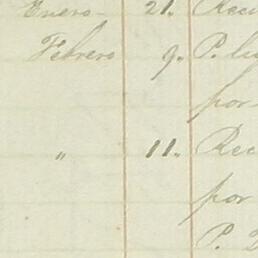 Enero - 21. Reci
Febrero 9. P.
por
" 11. Rec
por
P.